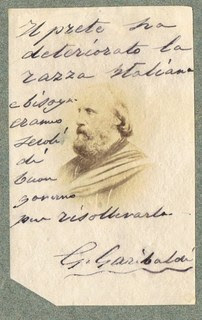 Il prete ha
deteriorato la
razza Italiana
e bisogn
eranno
secoli
di
buon
governo
per risollevarla
G. Garibaldi